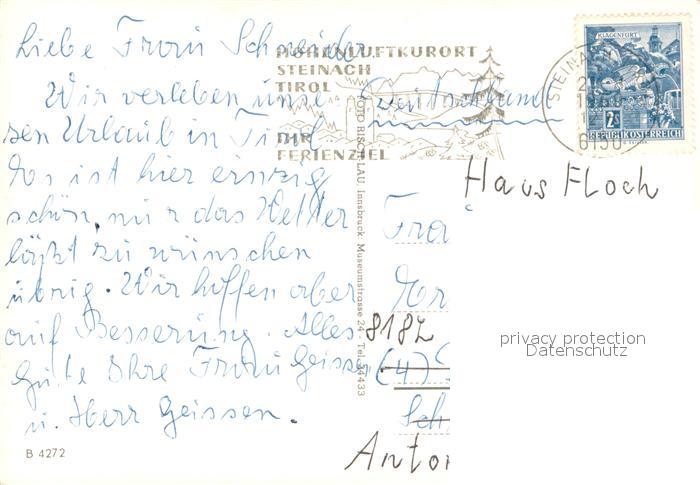 Liebe Frau Schneider
Wir verleben unse
ren Urlaub in Tirol.
Es ist hier einzig
schön, nur das Wetter
läßt zu wünschen
übrig. Wir hoffen aber
auf Besserung. Alles
Gute Ihre Frau Geissen
u. Herr Geissen.
B 4272
HÖHENLUFTKURORT
STEINACH
TIROL
IHR
FERIENZIEL
OTTO RISCHLAU, Innsbruck, Museumstrasse 24 - Tel. 24433
KLAGENFURT
2S
REPUBLIK ÖSTERREICH
STEINA
6150
Deutschland
Haus Floch
Frau
8182
(4)
Sch
Anto
privacy protection
Datenschutz